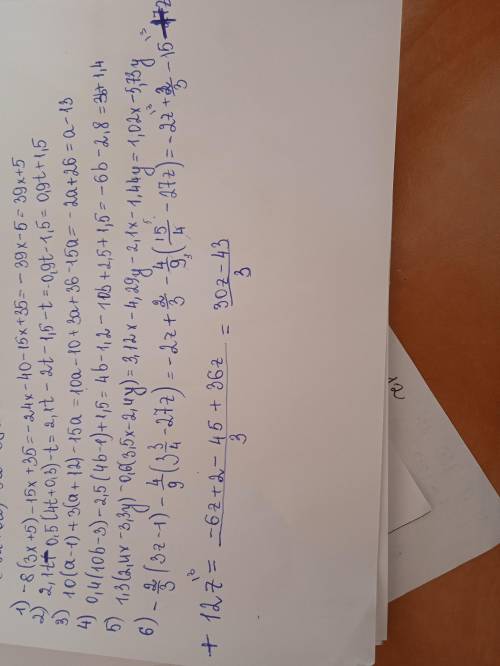 1) -8(3x+5)-15x+35=-24x-40-15x+35=-39x-5=39x+5
2) 2,1t-0,5(4t+0,3)-t=2,1t-2t-1,5-t=-0,9t-1,5=0,9t+1,5
3) 10(a-1)+3(a+12)-15a=10a-10+3a+36-15a=-2a+26=a-13
4) 0,4(10b-3)-2,5(4b-1)+1,5=4b-1,2-10b+2,5+1,5=-6b-2,8=3b+1,4
5) 1,3(2,4x-3,3y)-0,6(3,5x-2,4y)=3,12x-4,29y-2,1x-1,44y=1,02x-5,73y
6) -2/3(3z-1)-4/9(3 3/4-27z)=-2z+2/3-4/9(15/4-27z)=-2z+2/3-15
+12z=-6z+2-45+36z/3=30z-43/3